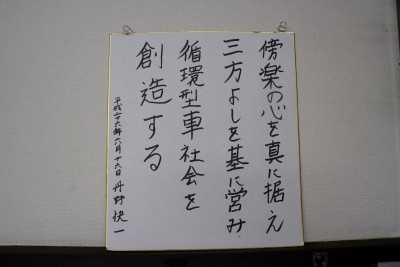 傍楽の心を真に据え
三方よしを基に営み
循環型車社会を
創造する
平成二十六年六月十六日 丹野快一